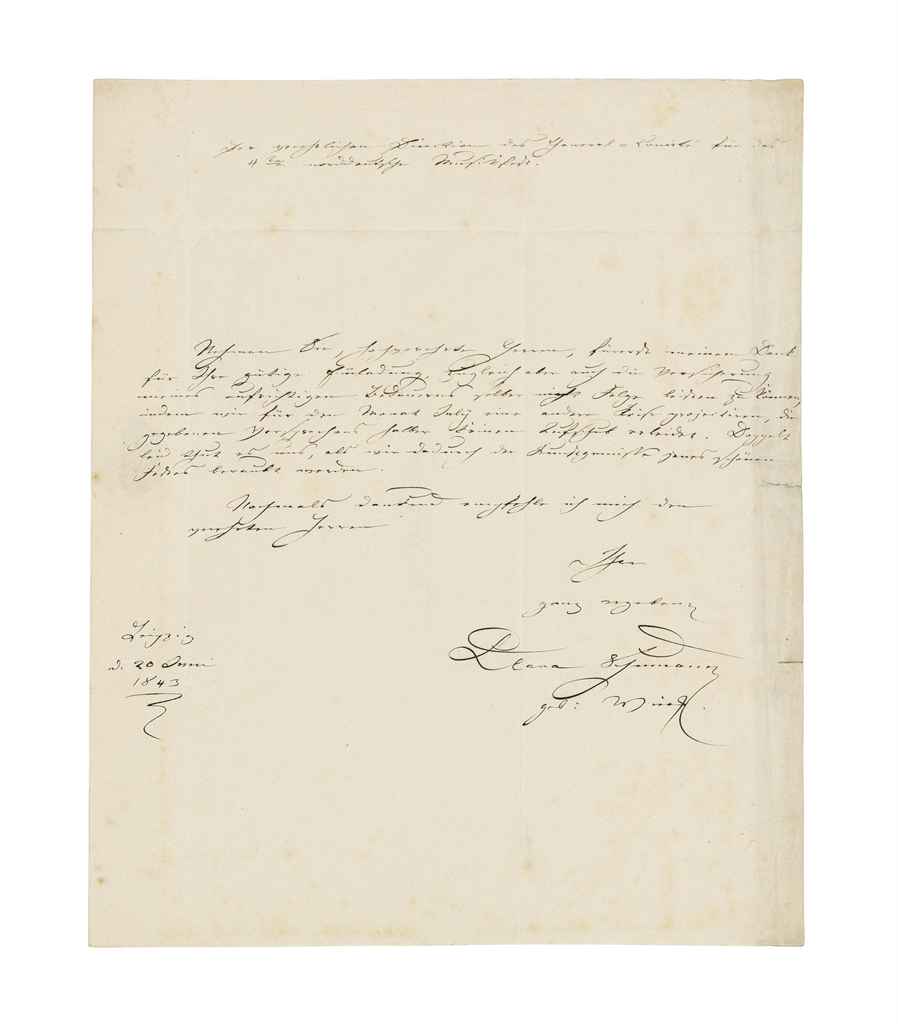 Der verehrlichen Direktion des General-Comité für das
4te norddeutsche Musikfest.
Nehmen Sie, hochgeehrte Herren, zuerst meinen Dank
für Ihre gütige Einladung, zugleich aber auch die Versicherung
meines aufrichtigen Bedauerns selber nicht Folge leisten zu können,
indem wir für den Monat July eine andere Reise projectiren, die
gegebenen Versprechens halber keinen Aufschub erleidet. Doppelt
leid thut es uns, als wir dadurch der Kunstgenüsse jenes schönen
Festes beraubt werden.
Nochmals dankend empfehle ich mich den
verehrten Herren
Ihre
ganz ergebene
Clara Schumann
geb: Wieck.
Leipzig
d. 20 Juni
1843